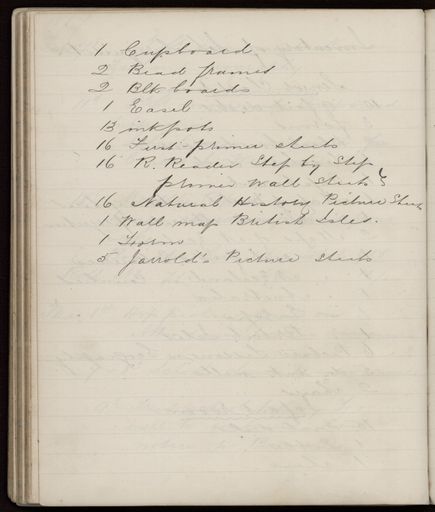 1 Cupboard
2 Bead frames
2 Blk boards
1 Easel
13 inkpots
16 First primer sheets
16 R. Reader Step by Step
primer Wall Sheets
16 Natural History Picture Sheets
1 Wall map British Isles.
1 Form
5 Jarrold's Picture sheets